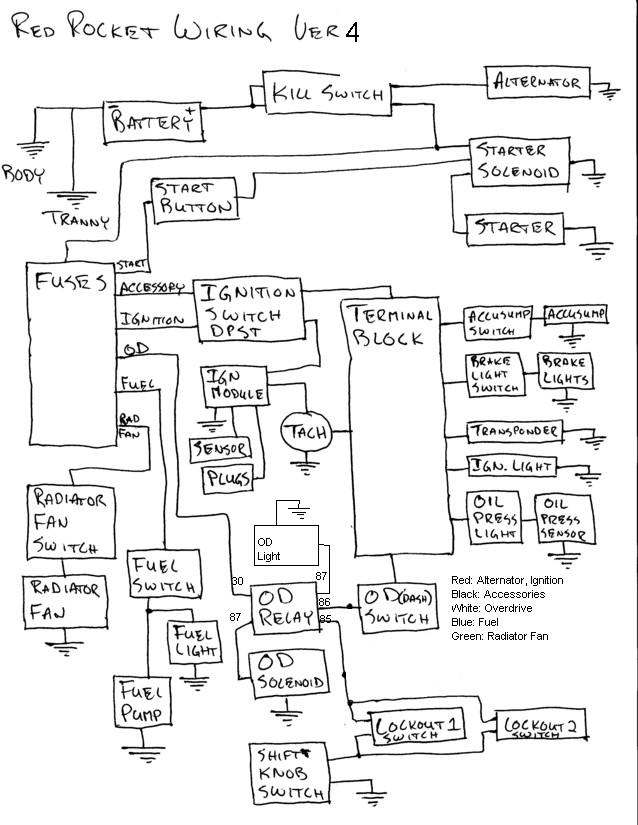 RED ROCKET WIRING VER 4
ALTERNATOR
KILL SWITCH
- BATTERY +
BODY
TRANNY
STARTER
SOLENOID
START
BUTTON
STARTER
START
FUSES
ACCESSORY
IGNITION
OD
FUEL
RAD
FAN
IGNITION
SWITCH
DPST
TERMINAL
BLOCK
ACCUSUMP
SWITCH
ACCUSUMP
BRAKE
LIGHT
SWITCH
BRAKE
LIGHTS
IGN
MODULE
TACH
SENSOR
PLUGS
TRANSPONDER
IGN. LIGHT
OIL
PRESS
LIGHT
OIL
PRESS
SENSOR
RADIATOR
FAN
SWITCH
RADIATOR
FAN
FUEL
SWITCH
FUEL
LIGHT
FUEL
PUMP
OD
Light
30
87
86
85
87
OD
RELAY
OD (DASH)
SWITCH
OD
SOLENOID
Red: Alternator, Ignition
Black: Accessories
White: Overdrive
Blue: Fuel
Green: Radiator Fan
LOCKOUT 1
SWITCH
LOCKOUT 2
SWITCH
SHIFT
KNOB
SWITCH